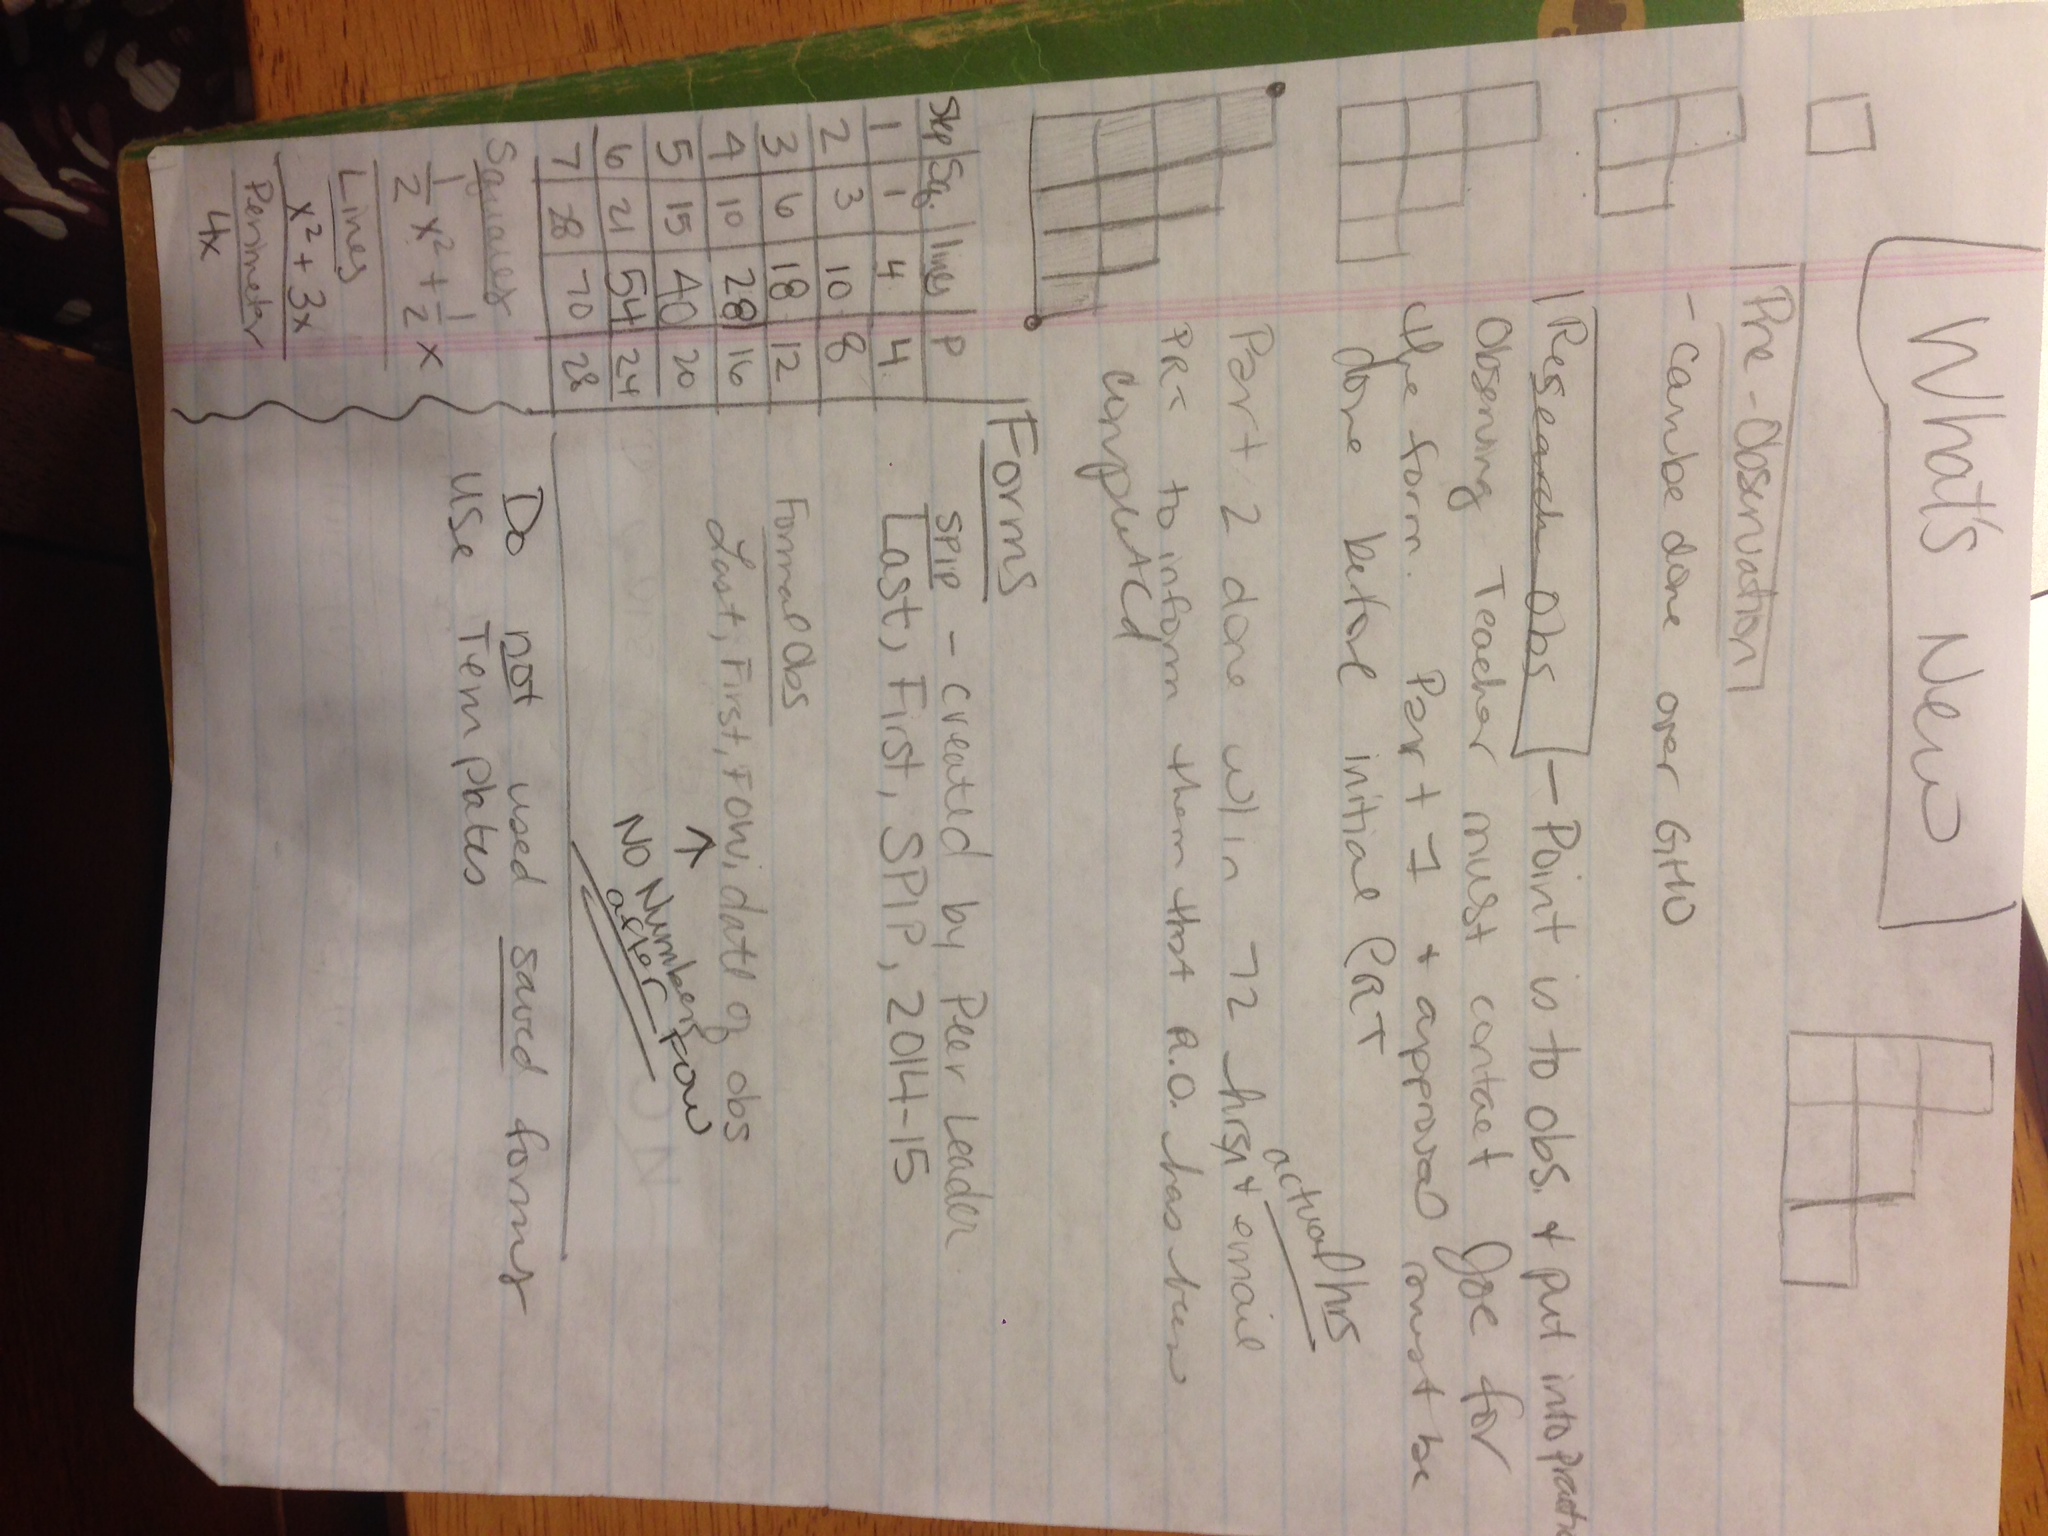 What's New
Pre-Observation
- can be done over GHO
Research Obs - Point is to obs. + put into
Observing Teacher must contact Joe for
the form. Part 1 + approval must be
done before initial PRT
actual hrs
Part 2 done w/in 72 hrs, + email
PRT to inform them that R.O. has been
completed
Forms
SPIP - created by Peer Leader
Last, First, SPIP, 2014-15
Formal Obs
Last, First, FOW, date of obs
No Numbers
after FOW
Do not used saved forms
Use Templates
Step Sq. lines P
1 1 4 4
2 3 10 8
3 6 18 12
4 10 28 16
5 15 40 20
6 21 54 24
7 28 70 28
Squares
1/2 x² + 1/2 x
Lines
x² + 3x
Perimeter
4x